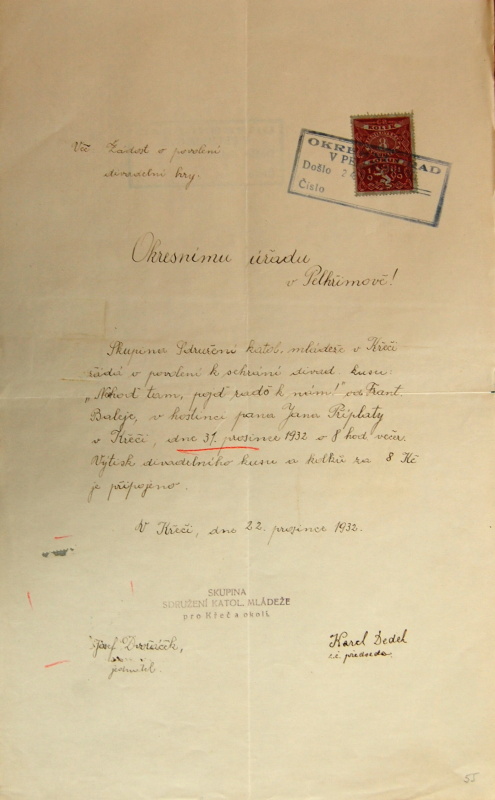 Věc Žádost o povolení
divadelní hry.
KOLEK
OKRE ÚŘAD
V PE
Došlo 2
Číslo
Okresnímu úřadu
v Pelhřimově!
Skupina Sdružení katol. mládeže v Křeči
žádá o povolení k sehrání divad. kusu:
"Nehoď tam, pojď radě k nám!" od Frant.
Baleje, v hostinci pana Jana Příplaty
v Křeči, dne 31. prosince 1932 o 8 hod večer.
Výtisk divadelního kusu a kolků za 8 Kč
je připojeno.
V Křeči, dne 22. prosince 1932.
SKUPINA
SDRUŽENÍ KATOL. MLÁDEŽE
pro Křeč a okolí.
Josef Dvořáček, Karel Dedel
jednatel. předseda